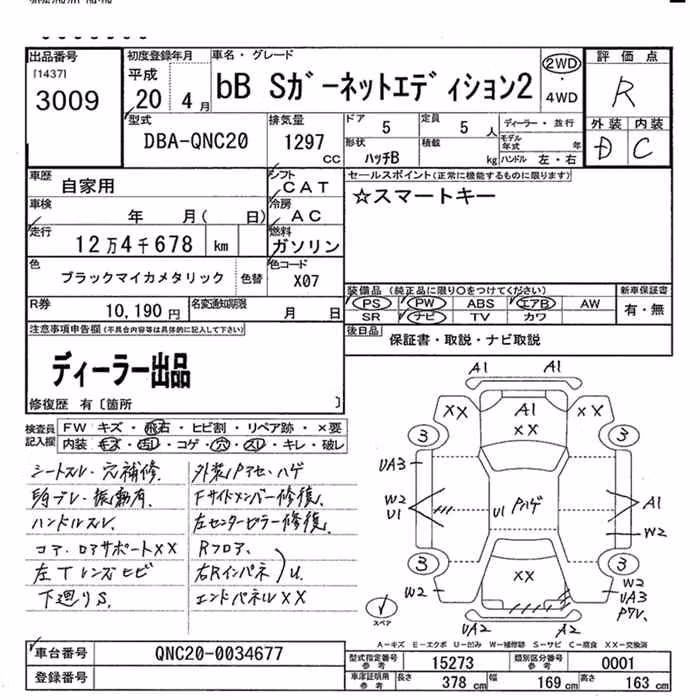 出品番号
[1437]
3009
初度登録年月
平成
20 4月
車名・グレード
bB Sガーネットエディション2
2WD
・
4WD
評価点
R
外装 内装
D C
型式
DBA-QNC20
排気量
1297
CC
ドア
5
定員
5人
形状
ハッチB
積載
kg
ディーラー・並行
モデル年式 年
ハンドル 左・右
車歴
自家用
シフト
CAT
車検
年 月( 日)
冷房
AC
走行
12万4千678 km
燃料
ガソリン
色
ブラックマイカメタリック 色替
色コード
X07
R券
10,190円
名変通知期限
月 日
セールスポイント(正常に機能するものに限ります)
☆スマートキー
装備品(純正品に限り○をつけてください)
PS PW ABS エアB AW
SR ナビ TV カワ
新車保証書
有・無
後日品
保証書・取説・ナビ取説
注意事項申告欄(不具合内容等は具体的に記入して下さい)
ディーラー出品
修復歴 有〔箇所 〕
検査員記入欄
FW キズ・飛石・ヒビ割・リペア跡・×要
内装 キズ・汚レ・コゲ・穴・スレ・キレ・破レ
シートスレ・穴補修.
内外プレ・振動有.
ハンドルスレ.
コア・ロアサポートXX
左Tレンズヒビ
下廻りS.
外装Pアセ・ハゲ
Fサイドメンバー修復.
左センターピラー修復.
Rフロア、
右Rインパネ U.
エンドパネルXX
A1 A1
XX A1 XX
XX
3 3
UA3
W2
U1
U1 Pハゲ
A1
W2
3 3
W2
XX
W2
UA3
PアU.
スペア
UA2 A2
A－キズ E－エクボ U－凹み W－補修跡 S－サビ C－腐食 XX－交換済
車台番号
QNC20-0034677
登録番号
型式指定番号
参考
15273
類別区分番号
参考
0001
車庫証明用
参考
長さ 378 cm 幅 169 cm 高さ 163 cm